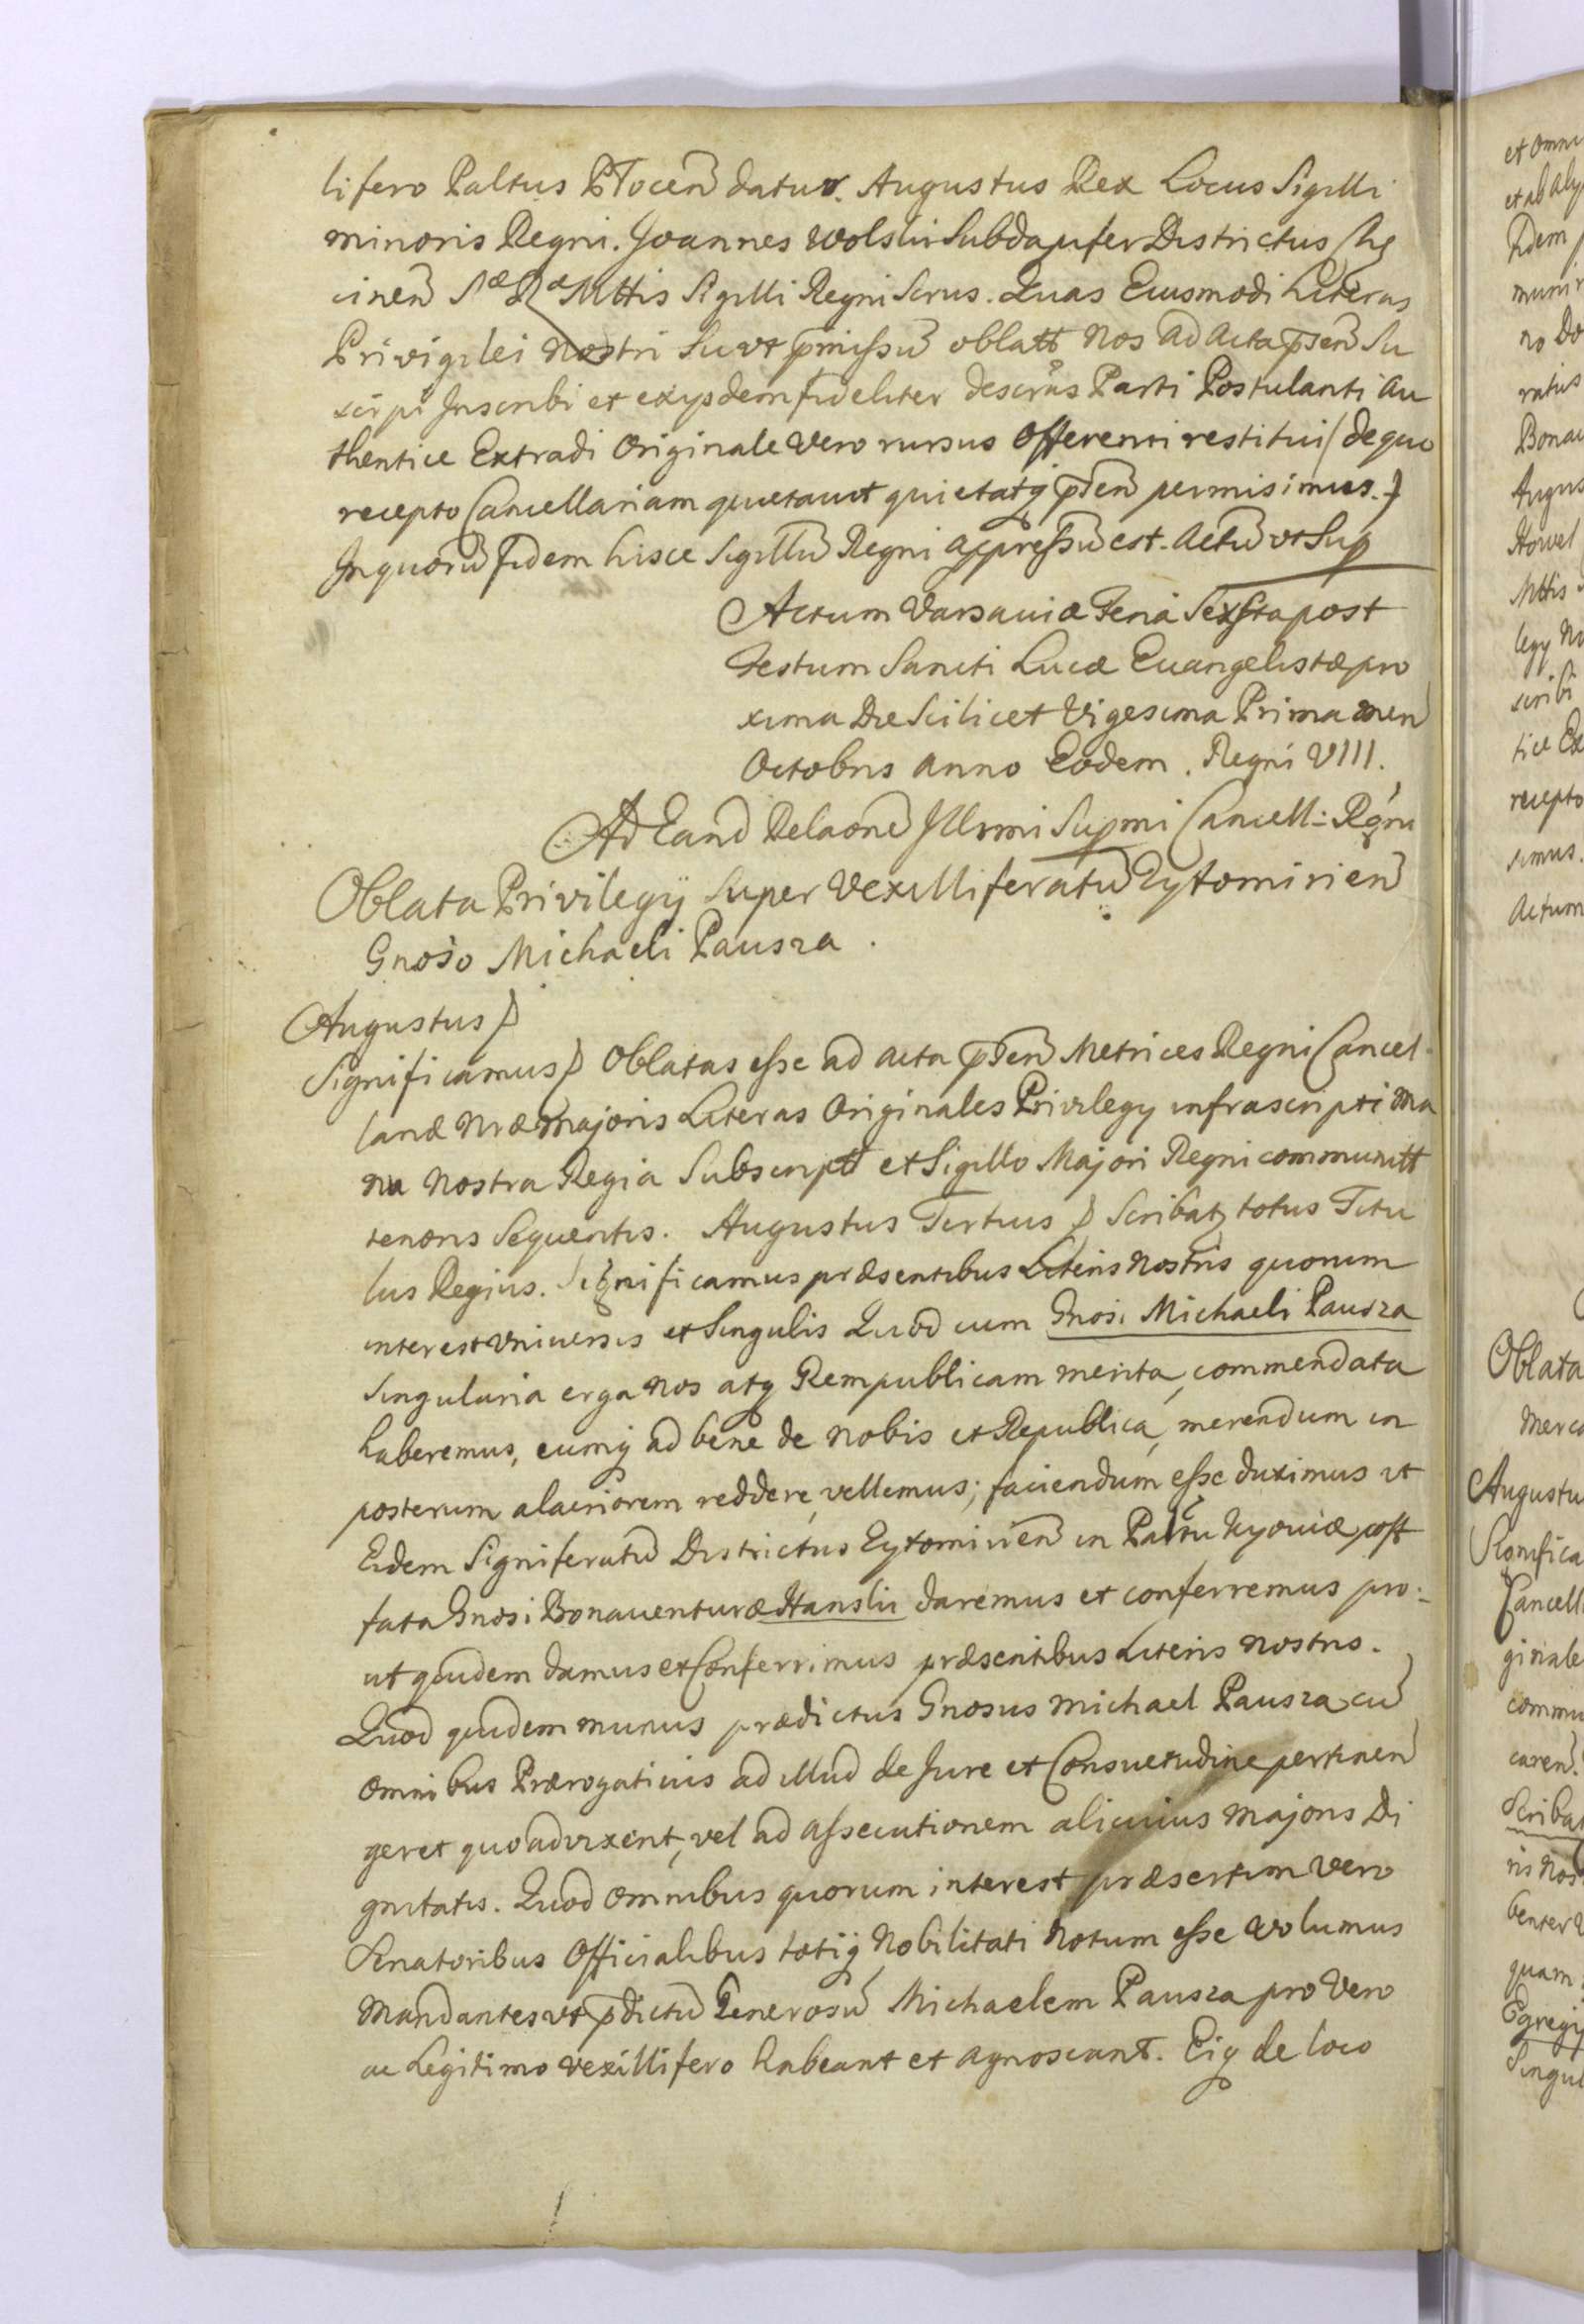 lifero Paltus Plocen datur. Augustus Rex Locus Sigilli
minoris Regni. Joannes Wolski Subdapifer Districtus Chę
cinen Sæ Ræ Mttis Sigilli Regni Scrus. Quas Eiusmodi Literas
Privigilei nostri Sic vt pmissu oblatt nos ad Acta psen Su
scipi Inscribi et ex ijsdem fideliter descras Parti Postulanti Au
thentice Extradi Originale Vero rursus Offerenti restitui (de quo
recepto Cancellariam quietavit quietatq psen permisimus.)
In quoru fidem hisce Sigillu Regni appressu est. Actu vt Sup
Actum Varsaviæ Feria Sexta post
Festum Sancti Lucæ Euangelistæ pro
xima Die Scilicet Vigesima Prima men
Octobris Anno Eodem. Regni VIII.
Ad Eand Relaone Illrmi Supmi Cancell: Regni
Oblata Privilegij Super Vexilliferatu Zytomirien
Gnoso Michaeli Pausza.
Augustus
Significamus Oblatas esse ad acta psen Metrices Regni Cancel
lariæ Nræ Majoris Literas Originales Privilegy infrascripti Ma
nu Nostra Regia Subscriptt et Sigillo Majori Regni communitt
tenoris Sequentis. Augustus Tertius Scribatz totus Titu
lus Regius. Significamus præsentibus Literis Nostris quorum
interest Vniuersis et Singulis Quod cum Gnosi Michaeli Pausza
Singularia erga nos atq Rempublicam merita, commendata
haberemus, eumq ad bene de nobis et Republica, merendum in
posterum alacriorem reddere, vellemus; faciendum esse duximus vt
Eidem Signiferatu Districtus Zytomirien in Paltu Kyoviæ post
fata Gnosi Bonaventuræ Hanski daremus et conferremus pro:
ut quidem damus et Conferrimus præsentibus Literis nostris.
Quod quidem munus prædictus Gnosus Michael Pausza cu
omnibus Prærogativis ad illud de Jure et Consuetudine pertinen
geret quoad vixerit, vel ad assecutionem alicuius Majoris Di
gnitatis. Quod omnibus quorum interest præsertim vero
Senatoribus Officialibus totiq Nobilitati Notum esse volumus
Mandantes vt pdictu Generosu Michaelem Pausza pro Vero
ac Legitimo Vexillifero habeant et agnoscant. Eiq de loco